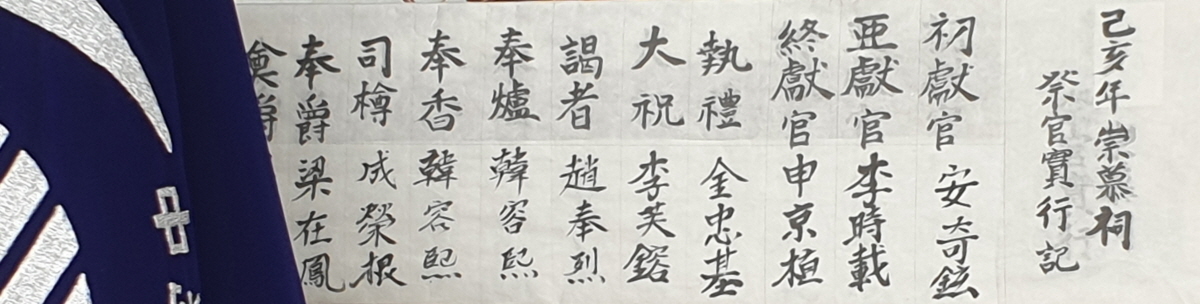 己亥年崇慕祠
祭官實行記
初獻官 安奇鉉
亜獻官 李時載
終獻官 申京植
執禮 金忠基
大祝 李芙鎔
謁者 趙奉烈
奉爐 韓容熙
奉香 韓容熙
司樽 成榮根
奉爵 梁在鳳
奠爵